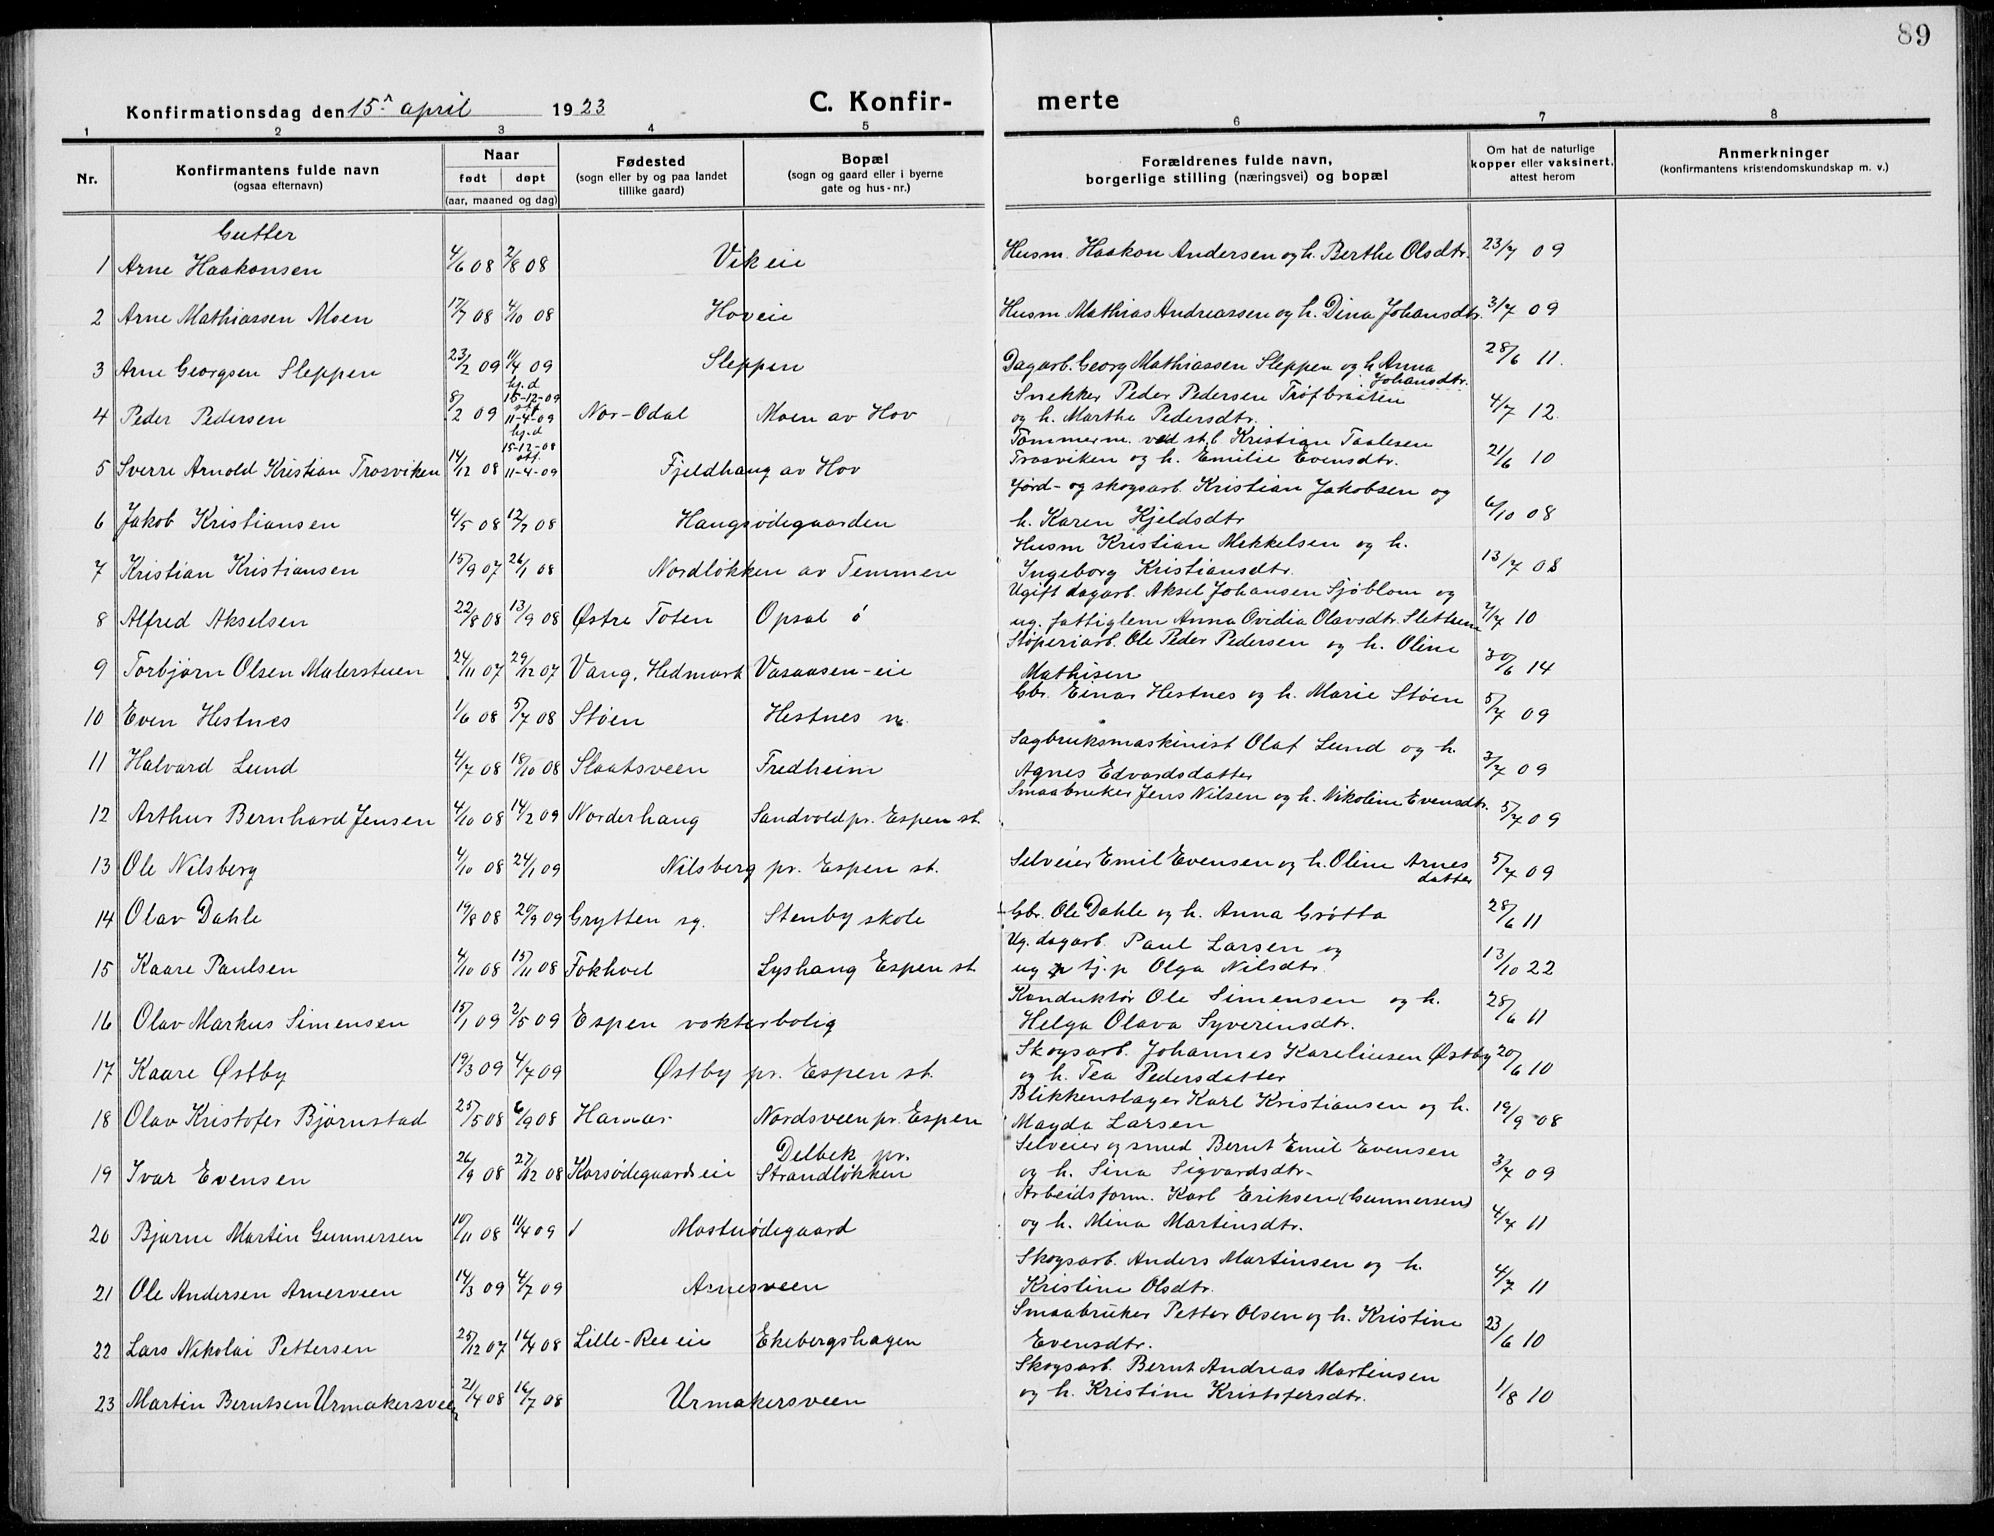 89
Konfirmationsdag den 15de april 1923 C. Konfir- merte
1 2 3 4 5 6 7 8
Nr. Konfirmantens fulde navn (ogsaa efternavn) Naar født døpt (aar, maaned og dag) Fødested (sogn eller by og paa landet tillike gaard) Bopæl (sogn og gaard eller i byerne gate og hus-nr.) Forældrenes fulde navn, borgerlige stilling (næringsvei) og bopæl Om hat de naturlige kopper eller vaksinert, attest herom Anmerkninger (konfirmantens kristendomskundskap m. v.)
Gutter
1 Arne Haakonsen 4/6 08 2/8 08 Vik eie Husm. Haakon Andersen og h. Berthe Olsdtr. 23/7 09
2 Arne Mathiassen Moen 17/7 08 4/10 08 Hov eie Husm. Mathias Andreassen og h. Dina Johansdtr. 3/7 09
3 Arne Georgsen Sleppen 23/2 09 11/4 09 Sleppen Dagarb. Georg Mathiassen Sleppen og h. Anna Johansdtr. 28/6 11.
4 Peder Pedersen 8/2 09 hj.d 15-12-09 stf. 11-4-09 Nor-Odal Moen av Hov Snekker Peder Pedersen Trøfbraaten og h. Marthe Pedersdtr. 4/7 12.
5 Sverre Arnold Kristian Trosviken 14/12 08 hj.d 15-12-08 stf. 11-4-09 Fjeldhaug av Hov Tømmerm. ved st.b. Kristian Taalesen Trosviken og h. Emilie Evensdtr. 21/6 10
6 Jakob Kristiansen 4/5 08 12/7 08 Haugsødegaarden Jord- og skogsarb. Kristian Jakobsen og h. Karen Kjeldsdtr 6/10 08
7 Kristian Kristiansen 15/9 07 26/1 08 Nordløkken av Temmen Husm Kristian Mikkelsen og h. Ingeborg Kristiansdtr. 13/7 08
8 Alfred Akselsen 22/8 08 13/9 08 Østre Toten Opsal ø Ugift dagarb. Aksel Johansen Sjøblom og ug. fattiglem Anna Ovidia Olavsdtr. Slettum 7/7 10
9 Torbjørn Olsen Malersteen 24/11 07 29/12 07 Vang, Hedmark Vasaasen-eie Støperiarb. Ole Peder Pedersen og h. Oline Mathisen 30/6 14
10 Even Hestnes 1/6 08 5/7 08 Støen Hestnes n. Gbr. Einar Hestnes og h. Marie Støen 5/7 09
11 Halvard Lund 4/7 08 18/10 08 Slaatsveen Fredheim Sagbruksmaskinist Olaf Lund og h. Agnes Edvardsdatter 3/7 09
12 Arthur Bernhard Jensen 4/10 08 14/2 09 Norderhaug Sandvold pr. Espen st. Smaabruker Jens Nilsen og h. Nikoline Evensdtr. 5/7 09
13 Ole Nilsberg 4/10 08 24/1 09 Nilsberg pr. Espen st. Selveier Emil Evensen og h. Oline Arnesdatter 5/7 09
14 Olav Dahle 19/8 08 20/9 09 Grytten sg. Stenby skole Gbr. Ole Dahle og h. Anna Grøtta 28/6 11
15 Kaare Paulsen 4/10 08 15/11 08 Tokhvil Lyshaug Espen st. Ug. dagarb. Paul Larsen og ug tj.p Olga Nilsdtr. 13/10 22
16 Olav Markus Simensen 15/1 09 2/5 09 Espen vokterbolig Konduktør Ole Simensen og h. Helga Olava Syverinsdtr. 28/6 11
17 Kaare Østby 19/3 09 4/7 09 Østby pr. Espen st. Skogsarb. Johannes Kareliusen Østby og h. Tea Pedersdatter 20/6 10
18 Olav Kristofer Bjørnstad 25/5 08 6/9 08 Hamar Nordsveen pr. Espen Blikkenslager Karl Kristiansen og h. Magda Larsen 19/9 08
19 Ivar Evensen 26/9 08 27/12 08 Korsødegaards eie Delbek pr. Strandløkken Selveier og smed Bernt Emil Evensen og h. Sina Sigvardsdtr. 3/7 09
20 Bjarne Martin Gunnersen 10/11 08 11/4 09 Mostuødegaard Arbeidsform. Karl Eriksen (Gunnersen) og h. Mina Martinsdtr. 4/7 11
21 Ole Andersen Arnesveen 14/3 09 4/7 09 Arnesveen Skogsarb. Anders Martinsen og h. Kristine Olsdtr. 4/7 11
22 Lars Nikolai Pettersen 25/12 07 16/4 08 Lille-Ree eie Ekebergshagen Smaabruker Petter Olsen og h. Kristine Evensdtr. 23/6 10
23 Martin Berntsen Urmakersveen 21/4 08 16/7 08 Urmakersveen Skogsarb. Bernt Andreas Martinsen og h. Kristine Kristofersdtr. 1/8 10